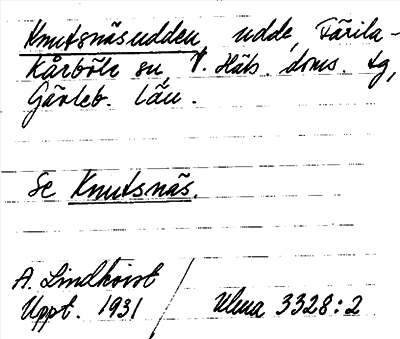 Knutsnäsudden, udde, Färila-
Kårböle sn, V. Häls. doms. tg,
Gävleb. län.
Se Knutsnäs.
A. Lindkvist
Uppt. 1931 / Ulma 3328:2